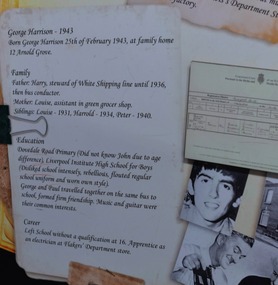 factory.
's Department Sto
George Harrison - 1943
Born George Harrison 25th of February 1943, at family home
12 Arnold Grove.
Family
Father: Harry, steward of White Shipping line until 1936,
then bus conductor.
Mother: Louise, assistant in green grocer shop.
Siblings: Louise - 1931, Harrold - 1934, Peter - 1940.
Education
Dovedale Road Primary (Did not know John due to age
difference). Liverpool Institute High School for Boys
(Disliked school intensely, rebellious, flouted regular
school uniform and worn own style).
George and Paul travelled together on the same bus to
school, formed firm friendship. Music and guitar were
their common interests.
Career
Left School without a qualification at 16. Apprentice as
an electrician at Blakers' Department store.